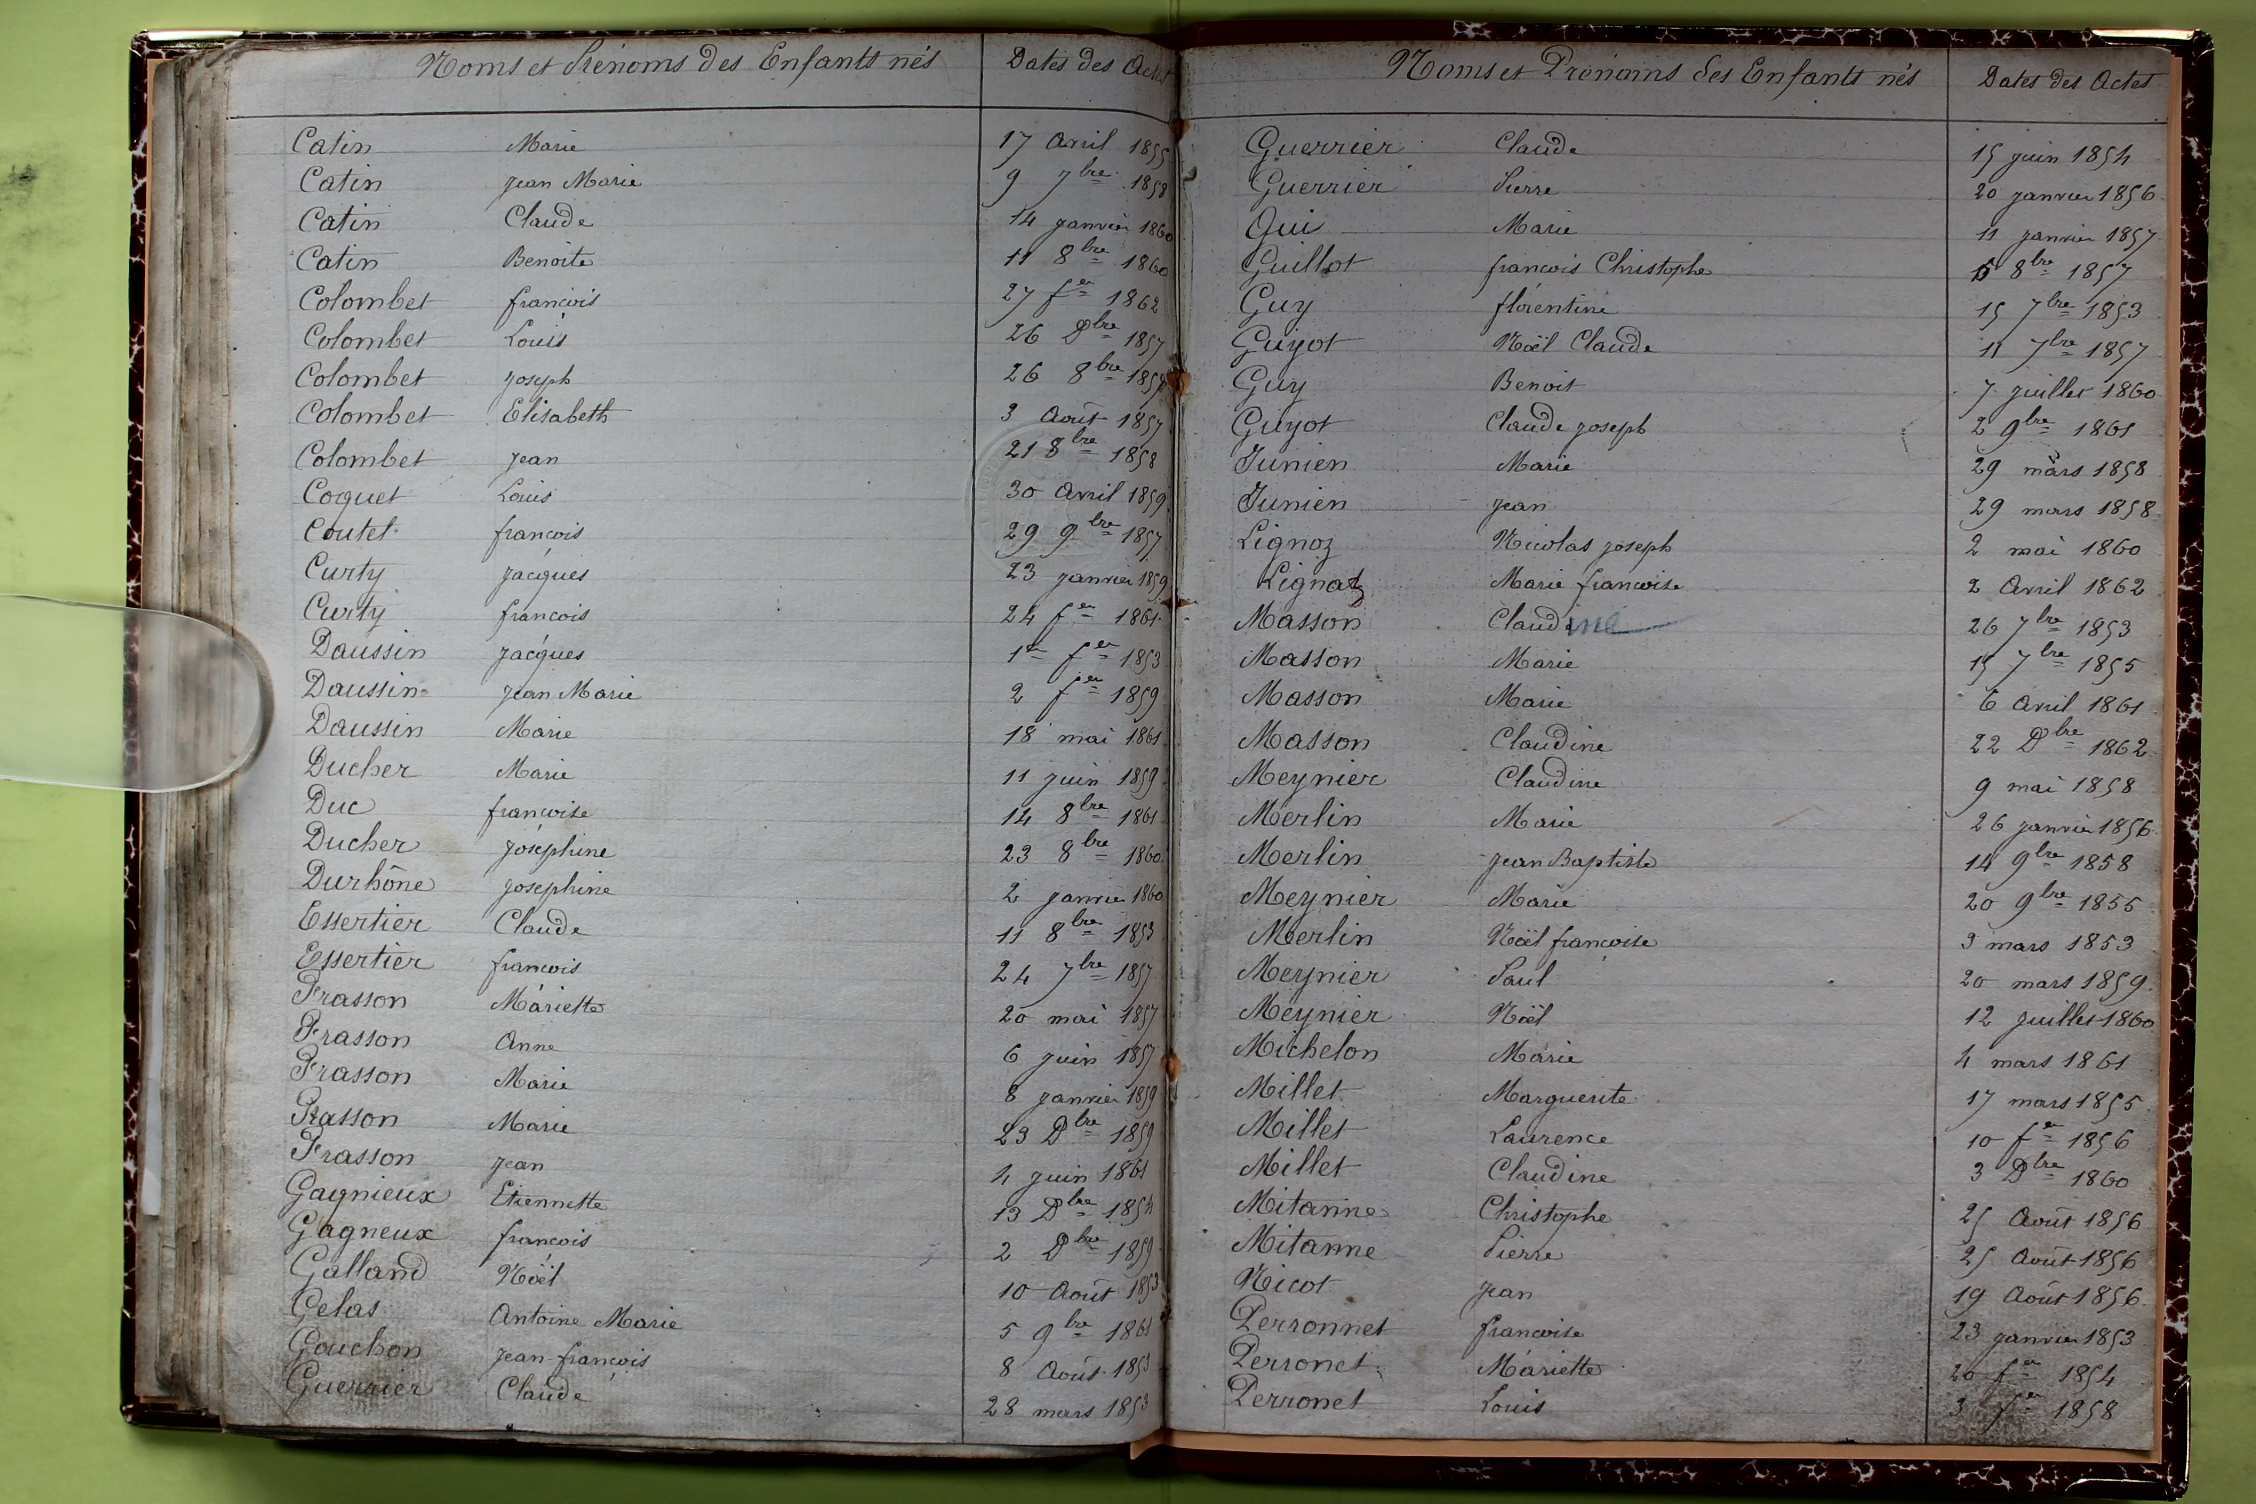 Noms et Prénoms des Enfants nés Dates des Actes
Catin Marie 17 Avril 1855
Catin Jean Marie 9 7bre 1858
Catin Claude 14 janvier 1860
Catin Benoite 11 8bre 1860
Colombet françois 27 fer 1862
Colombet Louis 26 Dbre 1857
Colombet Joseph 26 8bre
Colombet Elisabeth 3 Août 1857
Colombet Jean 21 8bre 1858
Coquet Louis 30 Avril 1859
Coutet françois 29 9bre 1857
Curty Jacques 23 janvier 1859
Curty françois 24 fer 1861
Daussin Jacques 1er fer 1853
Daussin Jean Marie 2 fer 1859
Daussin Marie 18 mai 1861
Ducher Marie 11 juin 1859
Duc françoise 14 8bre 1861
Ducher Joséphine 23 8bre 1860
Durhône Josephine 2 janvier 1860
Essertier Claude 11 8bre 1853
Essertier françois 24 7bre 1857
Frasson Mariette 20 mai 1857
Frasson Anne 6 juin 1857
Frasson Marie 8 janvier 1859
Frasson Marie 23 Dbre 1859
Frasson Jean 4 juin 1861
Gagnieux Etiennette 13 Dbre 1854
Gagneux françois 2 Dbre 1859
Galland Noël 10 Août 1853
Gelas Antoine Marie 5 9bre 1861
Gouchon Jean-françois 8 Août 1853
Guerrier Claude 28 mars 1853
Noms et Prénoms des Enfants nés Dates des Actes
Guerrier Claude 15 juin 1854
Guerrier Pierre 20 janvier 1856
Gui Marie 11 janvier 1857
Guillot françois Christophe 5 8bre 1857
Guy florentine 15 7bre 1853
Guyot Noël Claude 11 7bre 1857
Guy Benoit 7 juillet 1860
Guyot Claude Joseph 2 9bre 1861
Junien Marie 29 mars 1858
Junien Jean 29 mars 1858
Lignoz Nicolas Joseph 2 mai 1860
Lignatz Marie françoise 2 Avril 1862
Masson Claudine 26 7bre 1853
Masson Marie 15 7bre 1855
Masson Marie 6 Avril 1861
Masson Claudine 22 Dbre 1862
Meynier Claudine 9 mai 1858
Merlin Marie 26 janvier 1856
Merlin Jean Baptiste 14 9bre 1858
Meynier Marie 20 9bre 1855
Merlin Noël françoise 3 mars 1853
Meynier Paul 20 mars 1859
Meynier Noël 12 juillet 1860
Michelon Marie 4 mars 1861
Millet Marguerite 17 mars 1855
Millet Laurence 10 fer 1856
Millet Claudine 3 Dbre 1860
Mitanne Christophe 25 Août 1856
Mitanne Pierre 25 Août 1856
Nicot Jean 19 Août 1856
Perronnet françoise 23 janvier 1853
Perronet Mariette 20 fer 1854
Perronet Louis 3 fer 1858